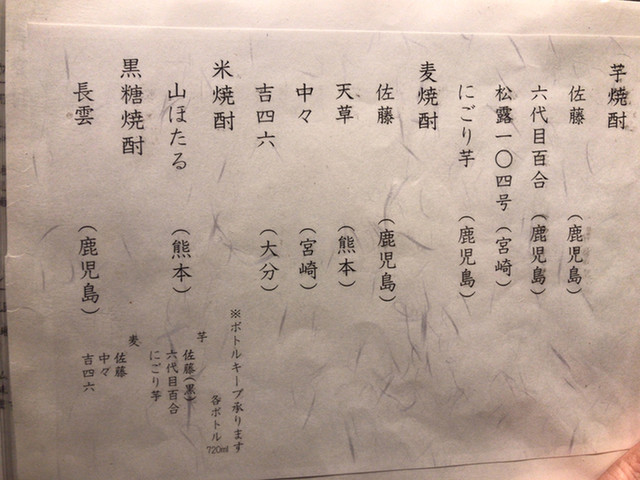 芋焼酎
佐藤 （鹿児島）
六代目百合 （鹿児島）
松露一〇四号 （宮崎）
にごり芋 （鹿児島）
麦焼酎
佐藤 （鹿児島）
天草 （熊本）
中々 （宮崎）
吉四六 （大分）
米焼酎
山ほたる （熊本）
黒糖焼酎
長雲 （鹿児島）
※ボトルキープ承ります
各ボトル720ml
芋
佐藤（黒）
六代目百合
にごり芋
麦
佐藤
中々
吉四六